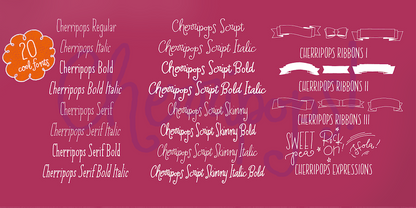 20
cool fonts
Cherripops Regular
Cherripops Italic
Cherripops Bold
Cherripops Bold Italic
Cherripops Serif
Cherripops Serif Italic
Cherripops Serif Bold
Cherripops Serif Bold Italic
Cherripops Script
Cherripops Script Italic
Cherripops Script Bold
Cherripops Script Bold Italic
Cherripops Script Skinny
Cherripops Script Skinny Bold
Cherripops Script Skinny Italic
Cherripops Script Skinny Italic Bold
CHERRIPOPS RIBBONS I
CHERRIPOPS RIBBONS II
CHERRIPOPS RIBBONS III
SWEET
pea
Rock
ON!
CHERRIPOPS EXPRESSIONS